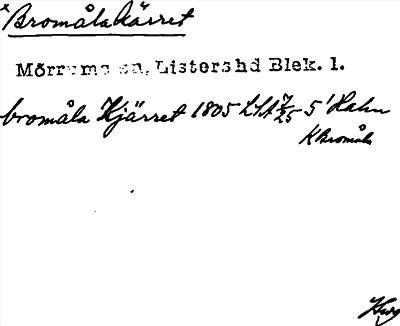 Bromålakärret
Mörrums sn, Listershd Blek. l.
bromåla Kjärret 1805 LSA 5' Hahn
K Bromåla